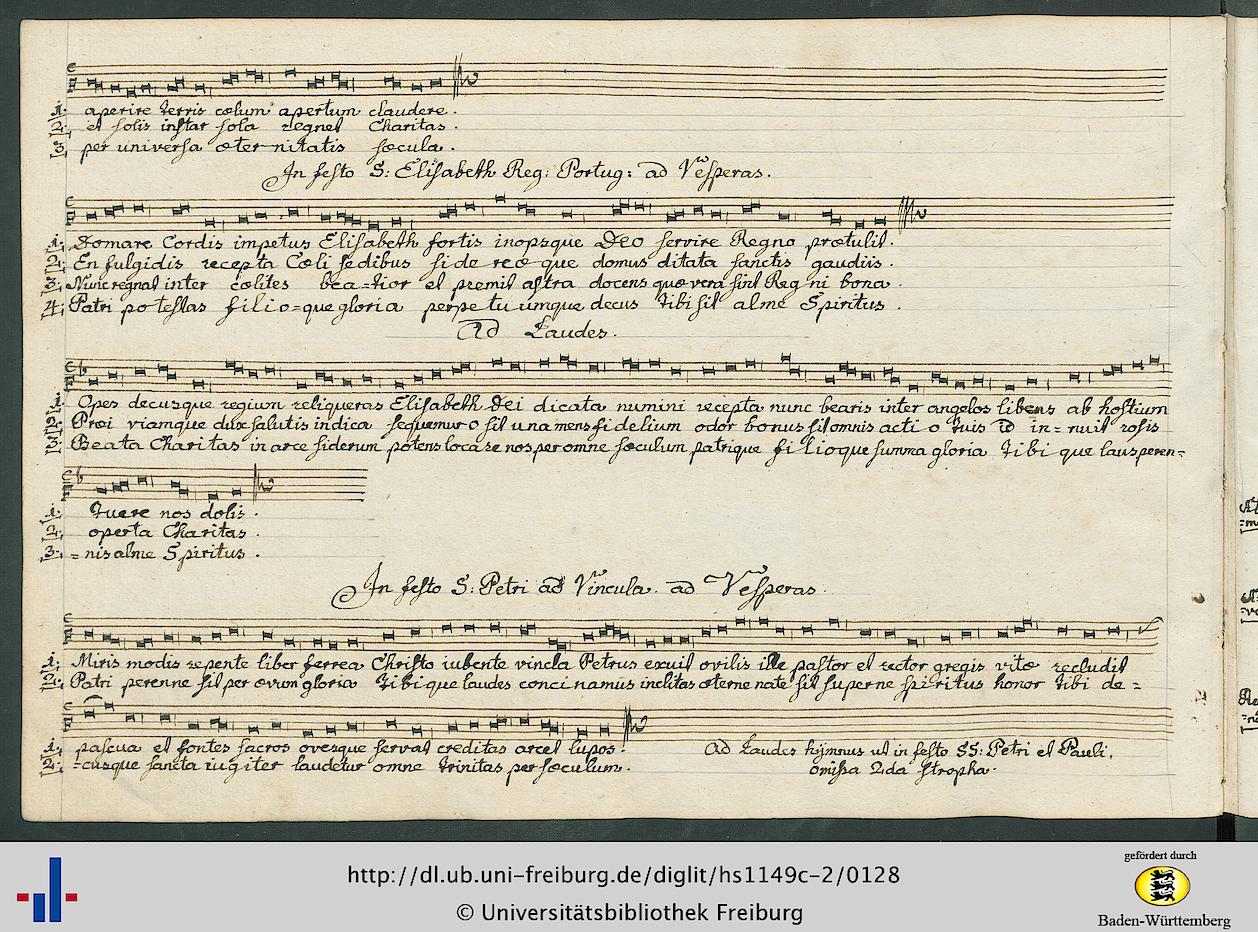 1. aperire terris cœlum apertum claudere.
2. et solis instar sola regnet Charitas.
3. per universa æter-nitatis sæcula.
In festo S: Elisabeth Reg: Portug: ad Vesperas.
1. Domare Cordis impetus Elisabeth fortis inopsque Deo servire Regno prætulit.
2. En fulgidis recepta Cœli sedibus side reæ que domus ditata sanctis gaudiis.
3. Nunc regnat inter cœlites bea=tior et premit astra docens quæ vera sint Reg ni bona.
4. Patri po testas filio=que gloria perpe tu umque decus tibi sit alme Spiritus.
Ad Laudes.
1. Opes decusque regium reliqueras Elisabeth Dei dicata numini recepta nunc bearis inter angelos libens ab hostium
2. Præi viamque dux salutis indica sequemur o sit una mens fidelium odor bonus sit omnis acti o tuis id in=nuit rosis
3. Beata Charitas in arce siderum potens loca re nos per omne sæculum patrique filioque summa gloria tibi que laus peren=
1. Tuere nos dolis.
2. operta Charitas.
3. =nis alme Spiritus.
In festo S: Petri ad Vincula. ad Vesperas.
1. Miris modis repente liber ferrea Christo iubente vincla Petrus exuit ovilis ille pastor et rector gregis vitæ recludit
2. Patri perenne sit per ævum gloria tibi que laudes conci namus inclitas æterne nate sit superne spiritus honor tibi de=
1. pascua et fontes sacros ovesque servat creditas arcet lupos.
2. =cusque sancta iugiter laudetur omne trinitas per sæculum.
Ad Laudes hymnus ut in festo SS: Petri et Pauli.
omissa 2da stropha.
http://dl.ub.uni-freiburg.de/diglit/hs1149c-2/0128
© Universitätsbibliothek Freiburg
gefördert durch
Baden-Württemberg